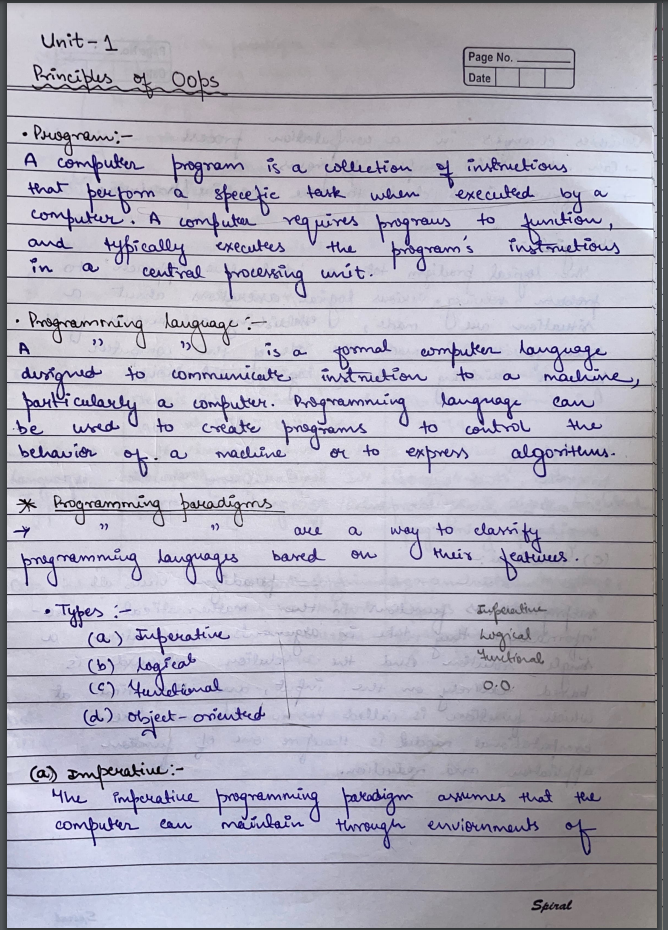 Unit-1
Page No.
Date
Principles of Oops
• Program:-
A computer program is a collection of instructions
that perform a specefic task when executed by a
computer. A computer requires programs to function,
and typically executes the program's instructions
in a central processing unit.
• Programming language:-
A " " is a formal computer language
designed to communicate instruction to a machine,
particularly a computer. Programming language can
be used to create programs to control the
behavior of a machine or to express algorithms.
* Programming paradigms
→ " " are a way to classify
programming languages based on their features.
• Types :-
(a) Imperative
(b) Logical
(c) Functional
(d) object-oriented
Imperative
Logical
Functional
O.O.
(a) Imperative:-
The imperative programming paradigm assumes that the
computer can maintain through enviornments of
Spiral